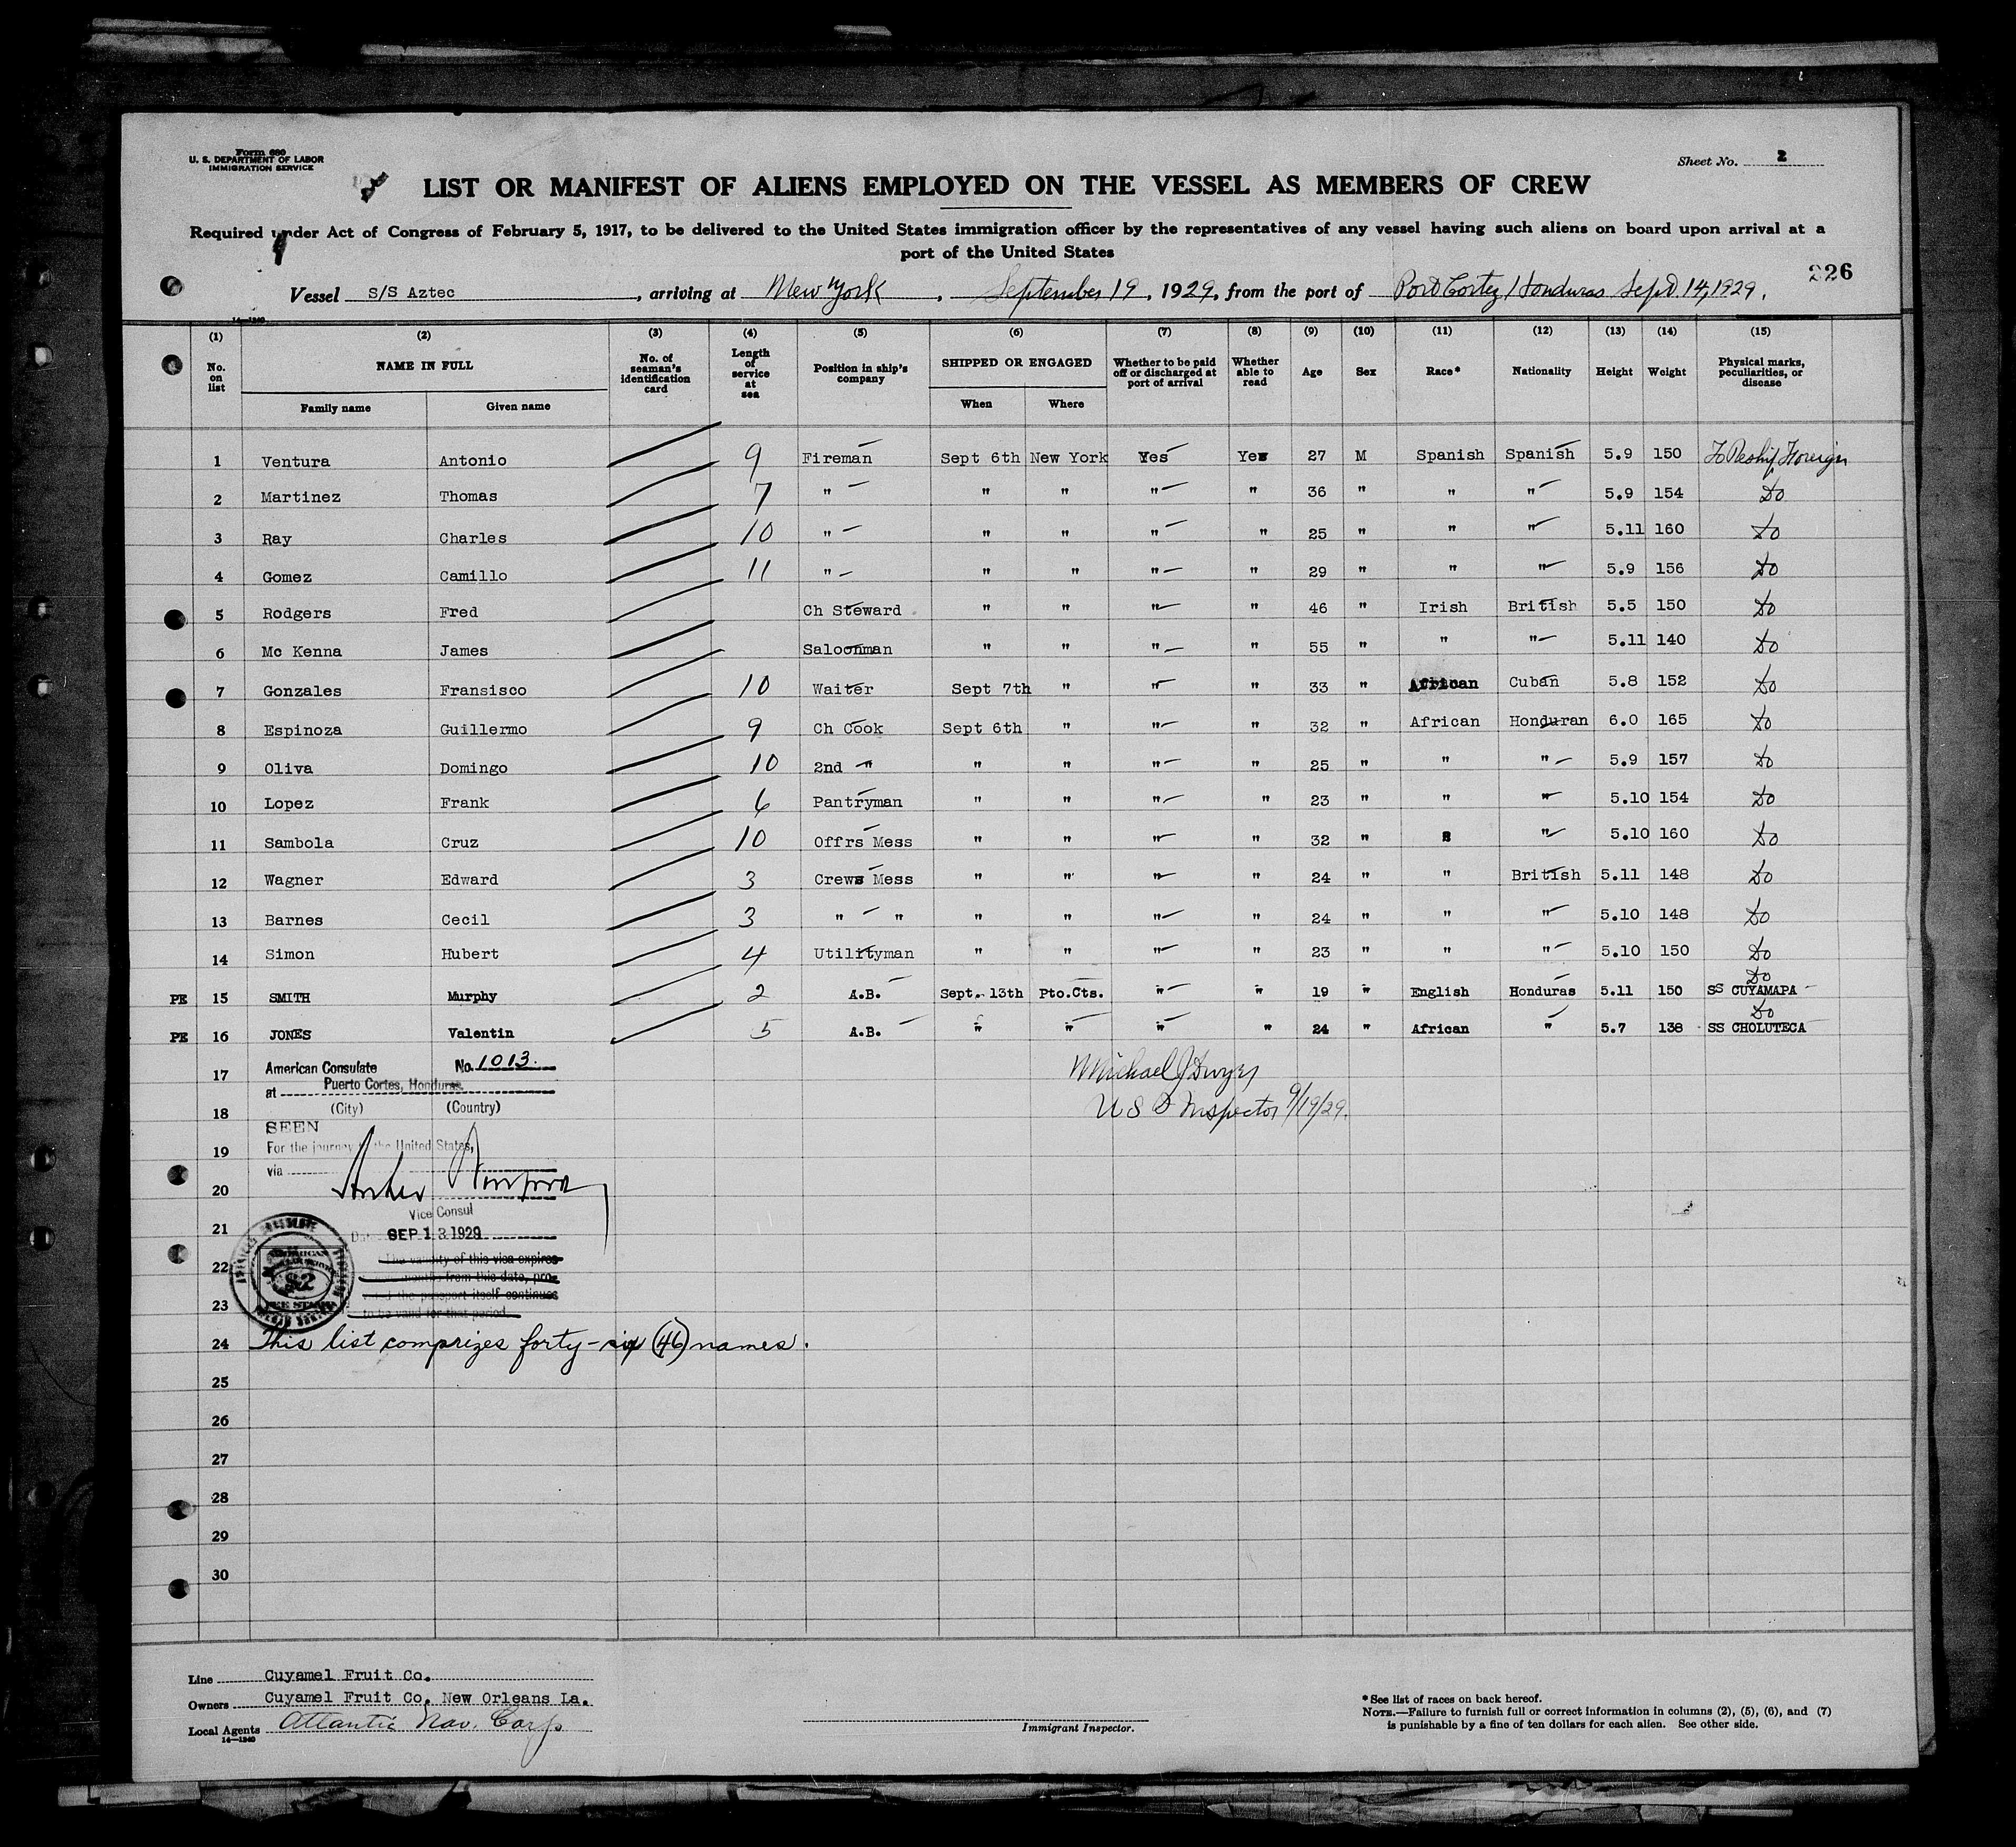 Form 680
U. S. DEPARTMENT OF LABOR
IMMIGRATION SERVICE
Sheet No. 2
LIST OR MANIFEST OF ALIENS EMPLOYED ON THE VESSEL AS MEMBERS OF CREW
Required under Act of Congress of February 5, 1917, to be delivered to the United States immigration officer by the representatives of any vessel having such aliens on board upon arrival at a
port of the United States
226
Vessel S/S Aztec, arriving at New York, September 19, 1929, from the port of Port Cortez, Honduras Sept. 14, 1929.
14—1240
(1) (2) (3) (4) (5) (6) (7) (8) (9) (10) (11) (12) (13) (14) (15)
No. on list NAME IN FULL No. of seaman's identification card Length of service at sea Position in ship's company SHIPPED OR ENGAGED Whether to be paid off or discharged at port of arrival Whether able to read Age Sex Race* Nationality Height Weight Physical marks, peculiarities, or disease
Family name Given name When Where
1 Ventura Antonio 9 Fireman Sept 6th New York Yes Yes 27 M Spanish Spanish 5.9 150 To Reship Foreign
2 Martinez Thomas 7 " " " " " 36 " " " 5.9 154 Do
3 Ray Charles 10 " " " " " 25 " " " 5.11 160 Do
4 Gomez Camillo 11 " " " " " 29 " " " 5.9 156 Do
5 Rodgers Fred Ch Steward " " " " 46 " Irish British 5.5 150 Do
6 Mc Kenna James Saloonman " " " " 55 " " " 5.11 140 Do
7 Gonzales Fransisco 10 Waiter Sept 7th " " " 33 " African Cuban 5.8 152 Do
8 Espinoza Guillermo 9 Ch Cook Sept 6th " " " 32 " African Honduran 6.0 165 Do
9 Oliva Domingo 10 2nd " " " " " 25 " " " 5.9 157 Do
10 Lopez Frank 6 Pantryman " " " " 23 " " " 5.10 154 Do
11 Sambola Cruz 10 Offrs Mess " " " " 32 " " " 5.10 160 Do
12 Wagner Edward 3 Crews Mess " " " " 24 " " British 5.11 148 Do
13 Barnes Cecil 3 " " " " " " 24 " " " 5.10 148 Do
14 Simon Hubert 4 Utilityman " " " " 23 " " " 5.10 150 Do
PE 15 SMITH Murphy 2 A.B. Sept. 13th Pto.Cts. " " 19 " English Honduras 5.11 150 Do SS CUYAMAPA
PE 16 JONES Valentin 5 A.B. " " " " 24 " African " 5.7 138 Do SS CHOLUTECA
17 American Consulate No. 1013.
at Puerto Cortes, Honduras.
(City) (Country)
Michael J Dwyer
18
U S Inspector 9/19/29.
SEEN
19 For the journey to the United States,
via
20
Vice Consul
21 Date SEP 13 1929
22 The validity of this visa expires
months from this date, pro-
23 the passport itself continues
to be valid for that period.
AMERICAN
$2
FEE STAMP
24 This list comprizes forty-six (46) names.
25
26
27
28
29
30
Line Cuyamel Fruit Co.
Owners Cuyamel Fruit Co. New Orleans La.
Local Agents Atlantic Nav. Corp
14—1240
Immigrant Inspector.
*See list of races on back hereof.
NOTE.—Failure to furnish full or correct information in columns (2), (5), (6), and (7)
is punishable by a fine of ten dollars for each alien. See other side.